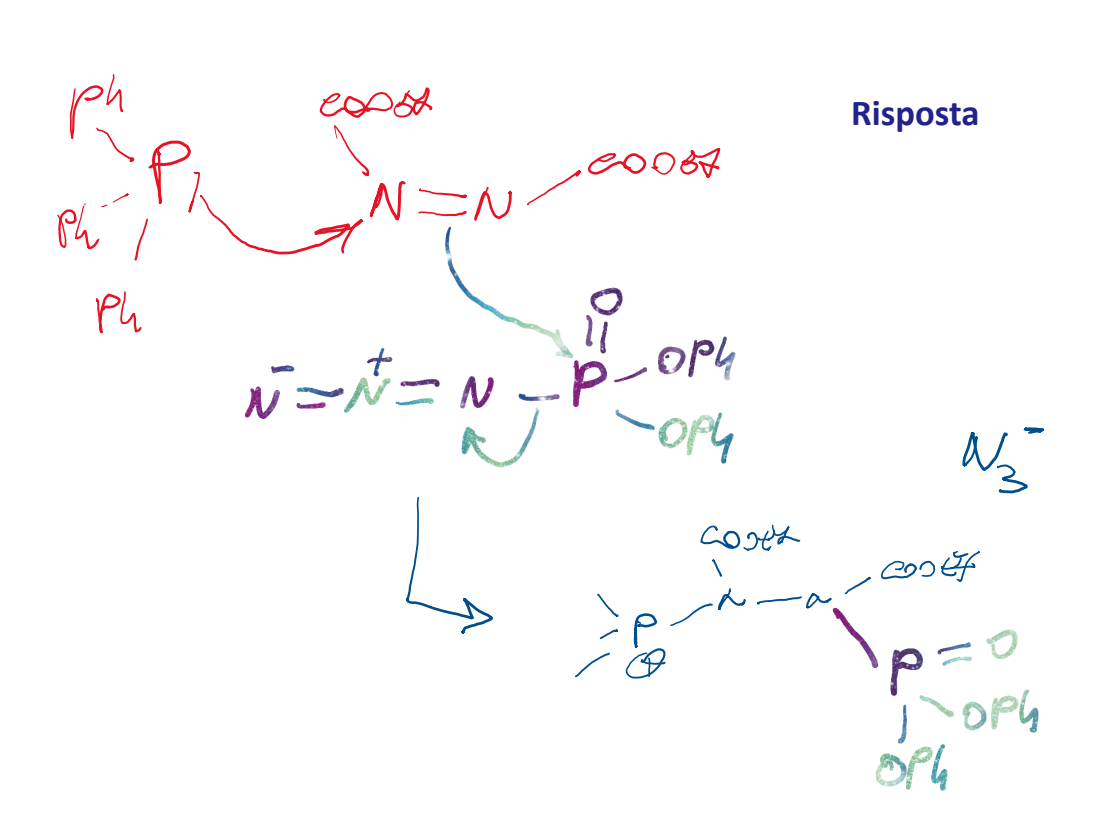 Risposta
Ph
P
Ph
Ph
COOEt
N=N
COOEt
O
N⁻=N⁺=N-P
OPh
OPh
N₃⁻
COOEt
COOEt
P
N-N
⊕
P=O
OPh
OPh